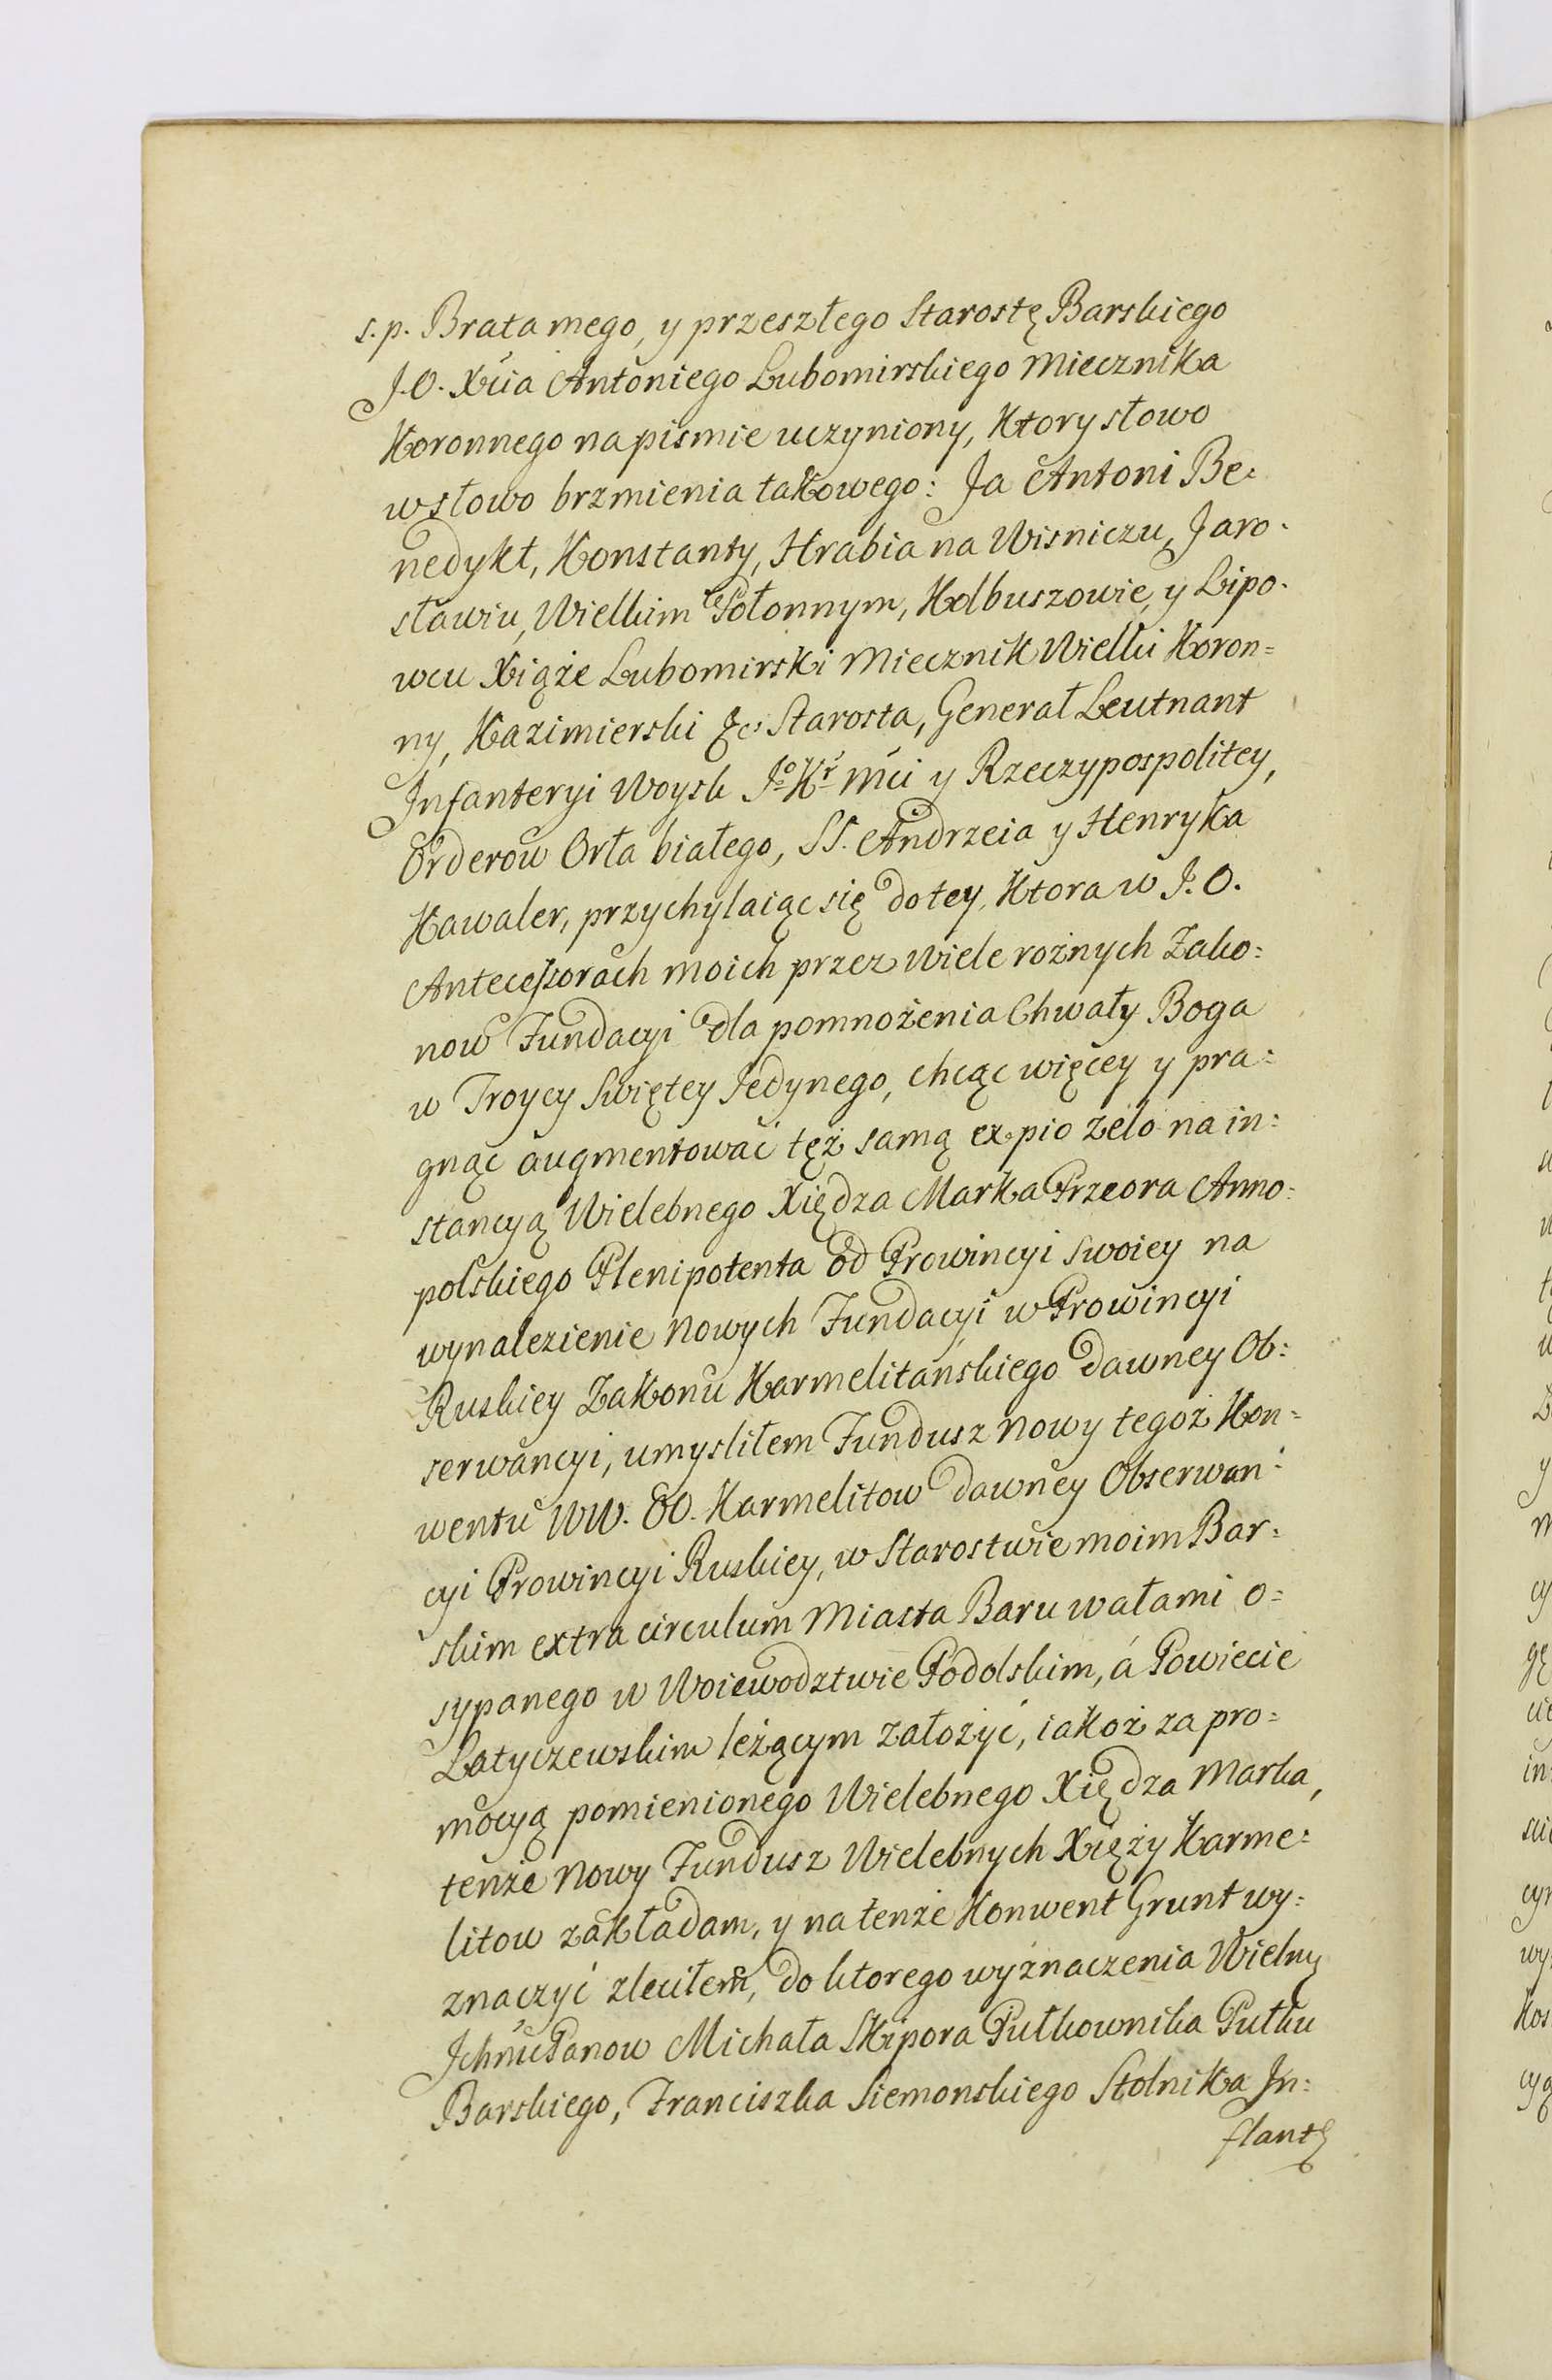 s.p. Brata mego, y przeszłego Starostę Barskiego
J.O. Xcia Antoniego Lubomirskiego Miecznika
Koronnego na pismie uczyniony, Ktory słowo
w słowo brzmienia takowego: Ja Antoni Be:
nedykt, Konstanty, Hrabia na Wisniczu, Jaro:
sławiu, Wielkim Połonnym, Kolbuszowie, y Lipo:
wcu Xiąże Lubomirski Miecznik Wielki Koron=
ny, Kazimierski &c: Starosta, Generał Leutnant
Infanteryi Woysk Jo Kr Mci y Rzeczypospolitey,
Orderow Orła białego, SS. Andrzeia y Henryka
Kawaler, przychylaiąc się do tey, Ktora w J.O.
Antecessorach moich przez wiele rożnych Zako:
now Fundacyi dla pomnożenia Chwały Boga
w Troycy Swiętey Jedynego, chcąc więcey y pra:
gnąc augmentować tęż samą ex pio zelo na in:
stancyą Wielebnego Xiędza Marka Przeora Anno:
polskiego Plenipotenta od Prowincyi swoiey na
wynalezienie nowych Fundacyi w Prowincyi
Ruskiey Zakonu Karmelitańskiego dawney Ob:
serwancyi, umysliłem Fundusz nowy tegoż Kon=
wentu WW. OO. Karmelitow dawney Obserwan:
cyi Prowincyi Ruskiey, w Starostwie moim Bar:
skim extra circulum Miasta Baru wałami o=
sypanego w Woiewodztwie Podolskim, á Powiecie
Latyczewskim leżącym założyć, iakoż za pro=
mocyą pomienionego Wielebnego Xiędza Marka,
tenże nowy Fundusz Wielebnych Xięży Karme:
litow zakładam, y na tenże Konwent Grunt wy:
znaczyć zleciłem, do ktorego wyznaczenia Wielny
Ichmć Panow Michała Skipora Pułkownika Pułku
Barskiego, Franciszka Siemonskiego Stolnika In:
flant